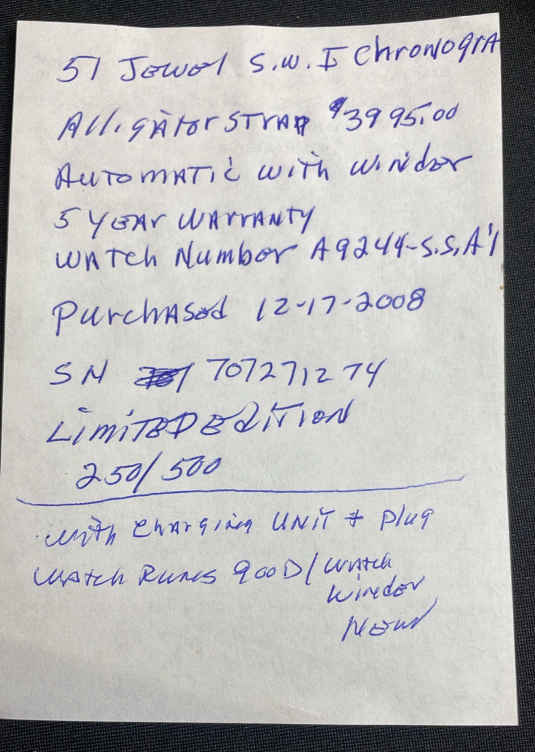 51 Jewel S.W.I Chronogra
Alligator Strap $3995.00
Automatic with winder
5 year warranty
watch Number A9244-S.S.A'1
Purchased 12-17-2008
SN 707271274
Limited Edition
250/500
with charging unit + plug
watch Runs good / watch
winder
New